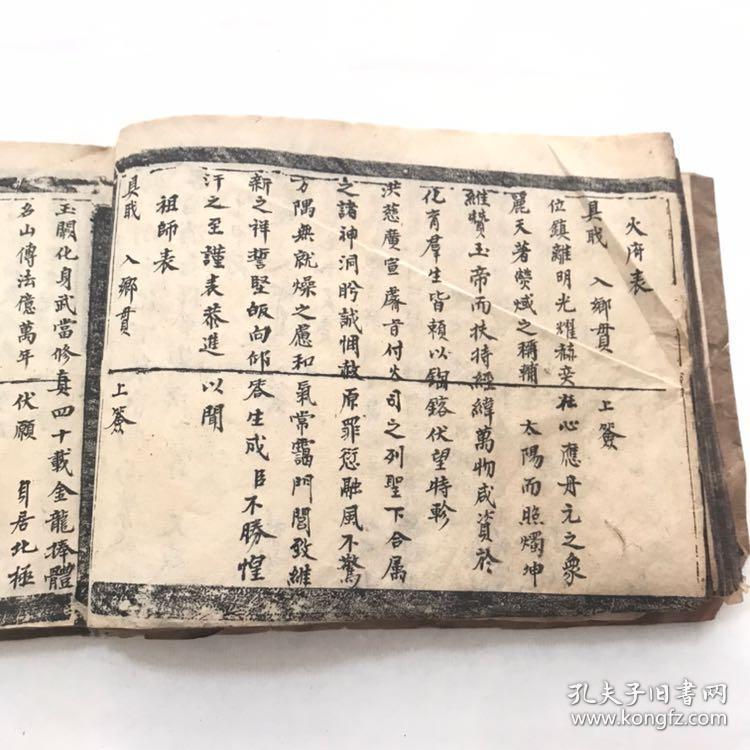 火府表
具職 入鄉貫 上簽
位鎮離明光耀赫奕柱心應丹元之象
麗天著熒惑之稱輔 太陽而照燭坤
維贊玉帝而扶持經緯萬物咸資於
化育羣生皆賴以鎔伏望特軫
洪慈廣宣睿旨付火司之列聖下合属
之諸神洞盻誠悃赦原罪愆融風不驚
方隅無就燥之慮和氣常靄門閭致維
新之祥誓堅皈向仰答生成 臣不勝惶
汗之至謹表恭進 以聞
祖師表
具職 入鄉貫 上簽
玉闕化身武當修真四十載金龍捧體
名山傳法億萬年 伏願 身居北極
孔夫子旧书网
www.kongfz.com